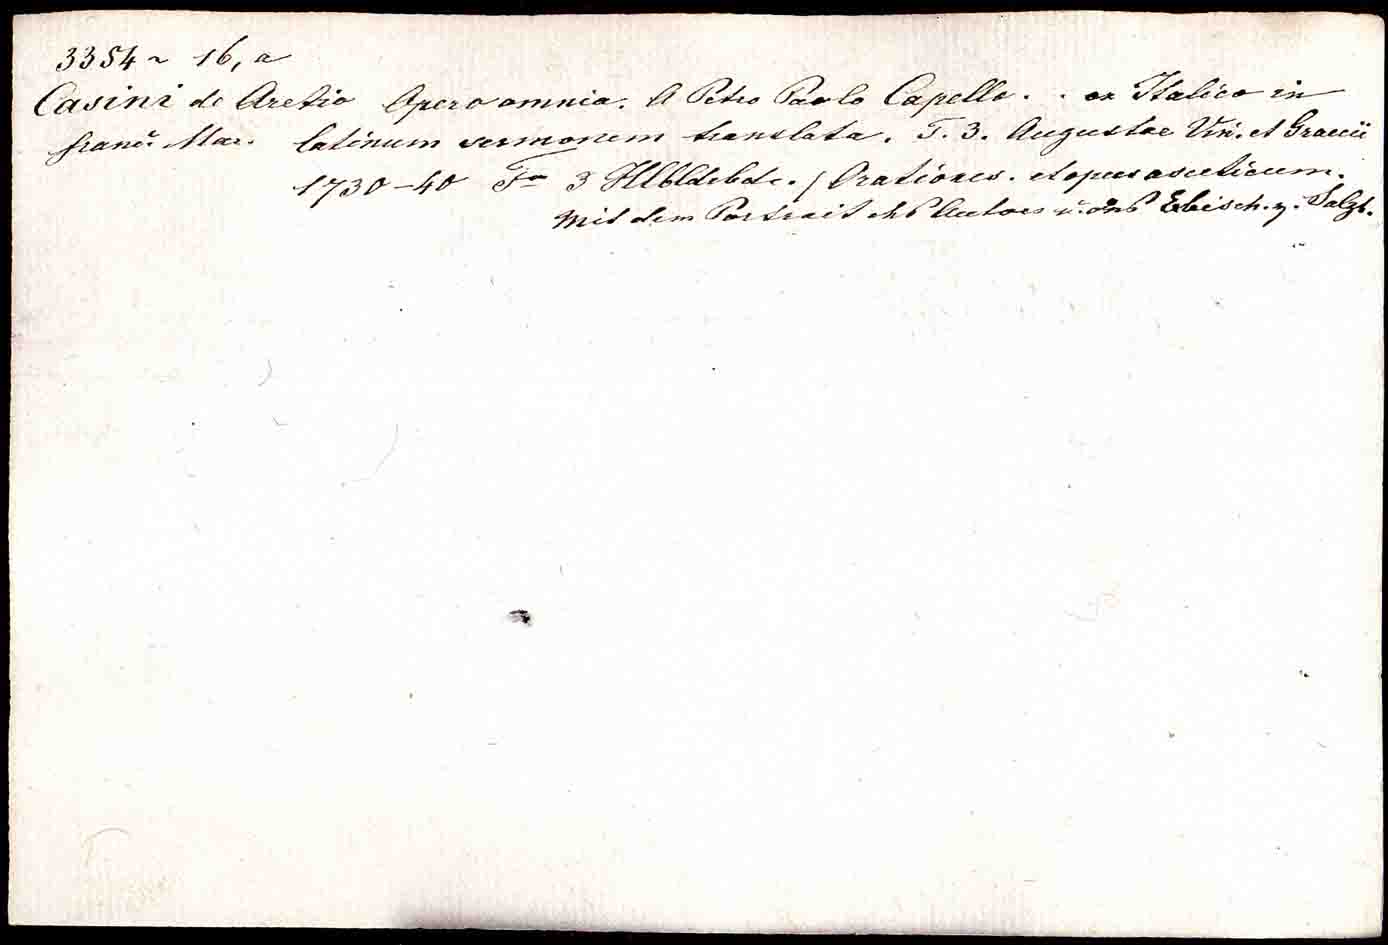 3354 ~ 16, a
Casini de Aretio Opera omnia. A Petro Paolo Capello . . ex Italico in
Franc. Mar. latinum sermonem translata. T. 3. Augustae Vin. et Graecii
1730-40 Fo 3 Hlbldrbde. / Orationes. et opus asceticum.
Mit dem Portrait des Autors u. des Erbisch. v. Salzb.